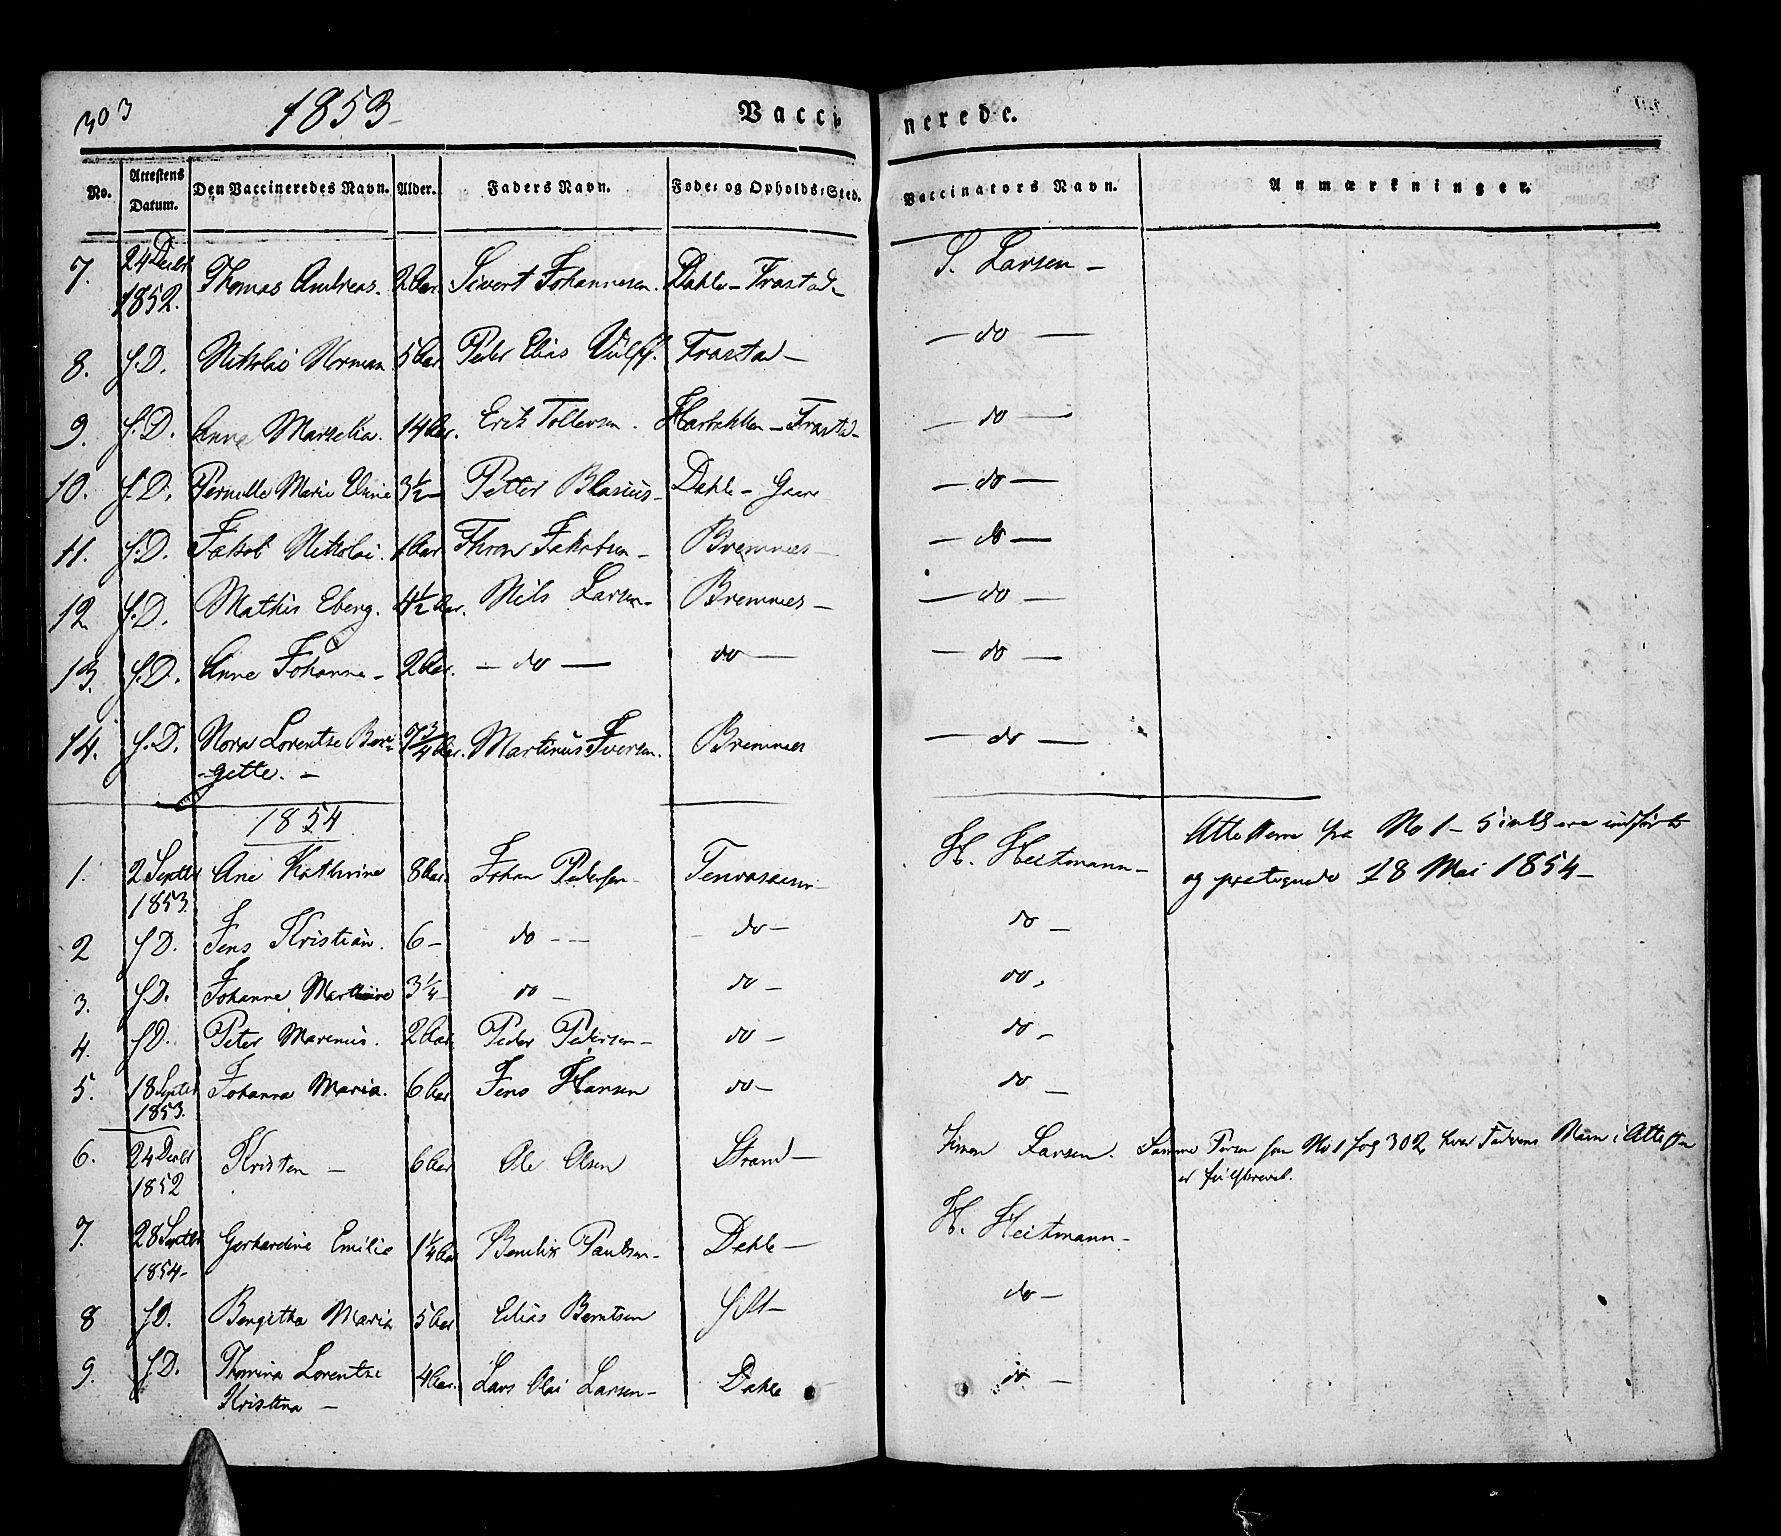 303 1853 Vaccinerede.
No. Attestens Datum. Den Vaccineredes Navn. Alder. Faders Navn. Føde: og Opholds: Sted. Vaccinators Navn. Anmærkninger.
7. 24 Decbr 1852. Thomas Andreas. 2 Aar. Sivert Johannesen. Dahle - Trastad - S. Larsen -
8. f. D. Nikolai Norman 5 Aar Peder Elias Trastad - - do -
9. f. D. Anne Marselia. 14 Aar. Erik Tollevsen. - Trastad - - do -
10. f. D. Pernelle Marie Eline 3 1/2 - Petter Blasius - Dahle - - do -
11. f. D. Jakob Nikolai. 1 Aar Jakobsen - Bremnes - - do -
12 f. D. Mathis Eberg. 4 1/2 Aar. Nils Larsen - Bremnes - - do -
13. f. D. Anne Johanna - 2 Aar. - do - do - - do -
14. f. D. Nora Lorentze Ber- 3/4 Aar. Martinus Iversen. Bremnes - do -
gette. -
1854
Attesterne fra No 1 - 5 incl ere indførte
1. 2 Septbr 1853 Ane Kathrine 8 Aar Johan Pedersen - H. Heitmann -
og 18 Mai 1854 -
2 f D. Jens Kristian. 6 - do - - do - do -
3. f D. Johanne Martine 3 1/4 - do - do - do.
4. f D. Peter Marenius. 2 Aar. Peder Pedersen - do - do -
5. 18 Septbr 1853. Johanna Maria. 6 Aar Jens Hansen do - do -
6. 24 Decbr 1852 Kristen - 6 Aar Ole Olsen Strand - Simon Larsen. Samme Person som No 1 pag 302, hvor Faderens Navn i Attesten
er feilskrevet.
7. 28 Septbr 1854 - Gerhardine Emilie 1 1/4 Aar Bendix Paulsen - Dahle - H. Heitmann -
8 f D. Bergitha Maria 5 Aar Elias Berntsen do -
9. f D. Thomina Lorentze 4 Aar. Lars Olai Larsen - Dahle do -
Kristina -